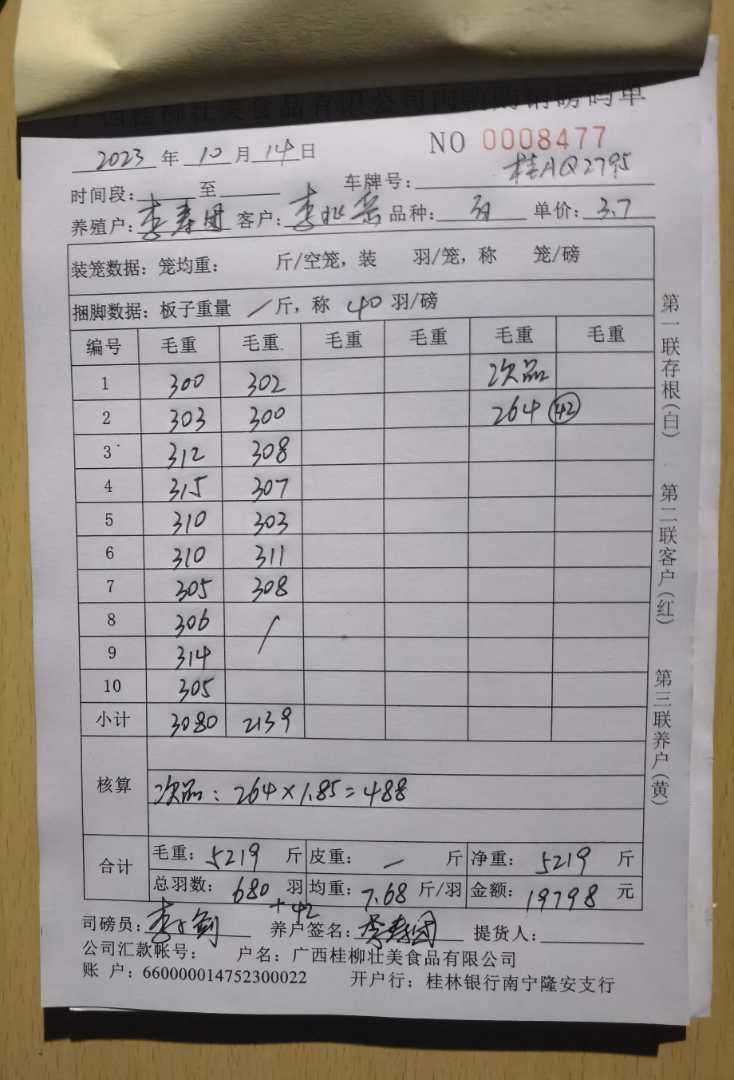 广西桂柳壮美食品有限公司肉鸭购销磅码单
2023 年 10 月 14 日 NO 0008477
时间段: 至 车牌号: 桂AQ2795
养殖户: 李寿团 客户: 品种: 单价: 3.7
装笼数据: 笼均重: 斤/空笼, 装 羽/笼, 称 笼/磅
捆脚数据: 板子重量 / 斤, 称 40 羽/磅
编号 毛重 毛重 毛重 毛重 毛重 毛重
1 300 302 次品
2 303 300 264 42
3 312 308
4 315 307
5 310 303
6 310 311
7 305 308
8 306 /
9 314
10 305
小计 3080 2139
核算
次品: 264×1.85=488
合计
毛重: 5219 斤 皮重: — 斤 净重: 5219 斤
总羽数: 680 羽 均重: 7.68 斤/羽 金额: 19798 元
+42
司磅员: 养户签名: 李寿团 提货人:
公司汇款帐号: 户名: 广西桂柳壮美食品有限公司
账 户: 660000014752300022 开户行: 桂林银行南宁隆安支行
第一联存根(白) 第二联客户(红) 第三联养户(黄)